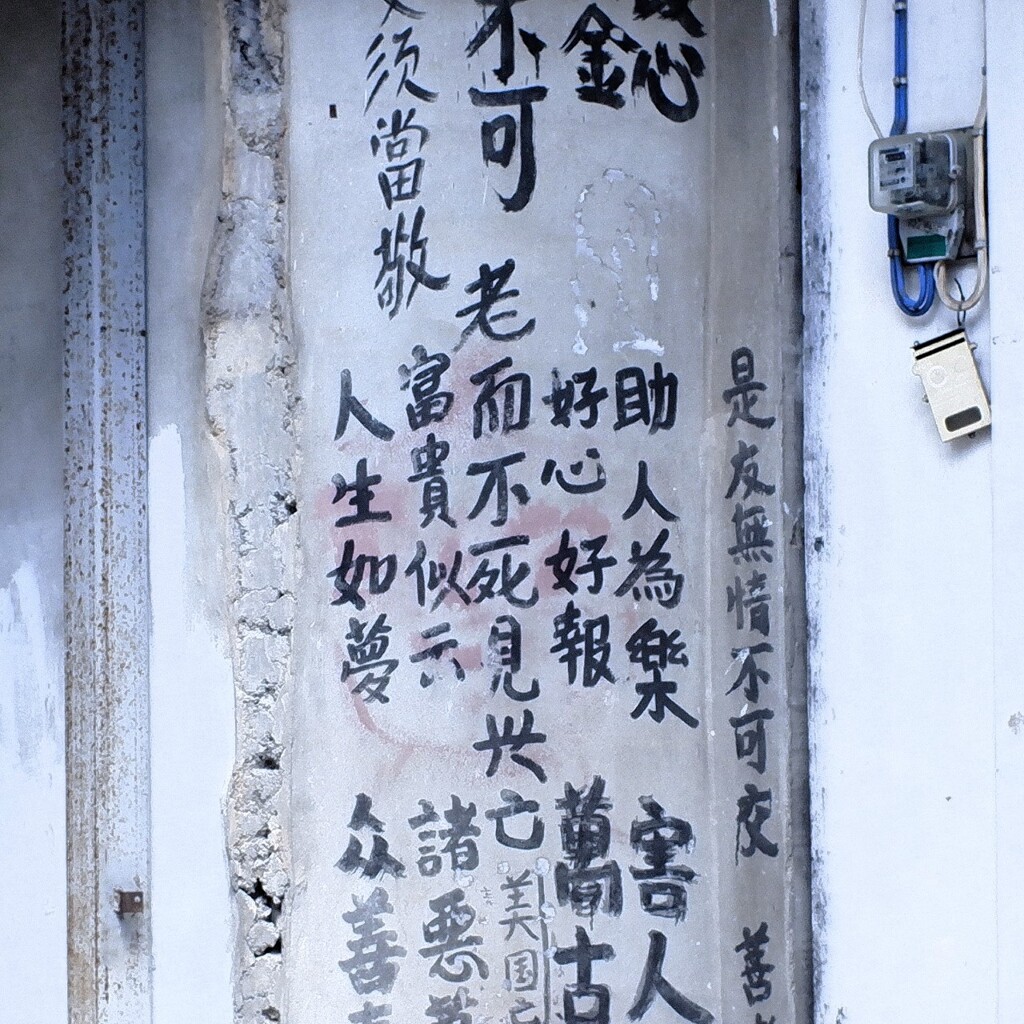 是友無情不可交
善
心
助人為樂
害人
金
好心好報
萬古
不可
老而不死見兴亡
美国亡
富貴似云
諸惡莫
須當敬
人生如夢
众善